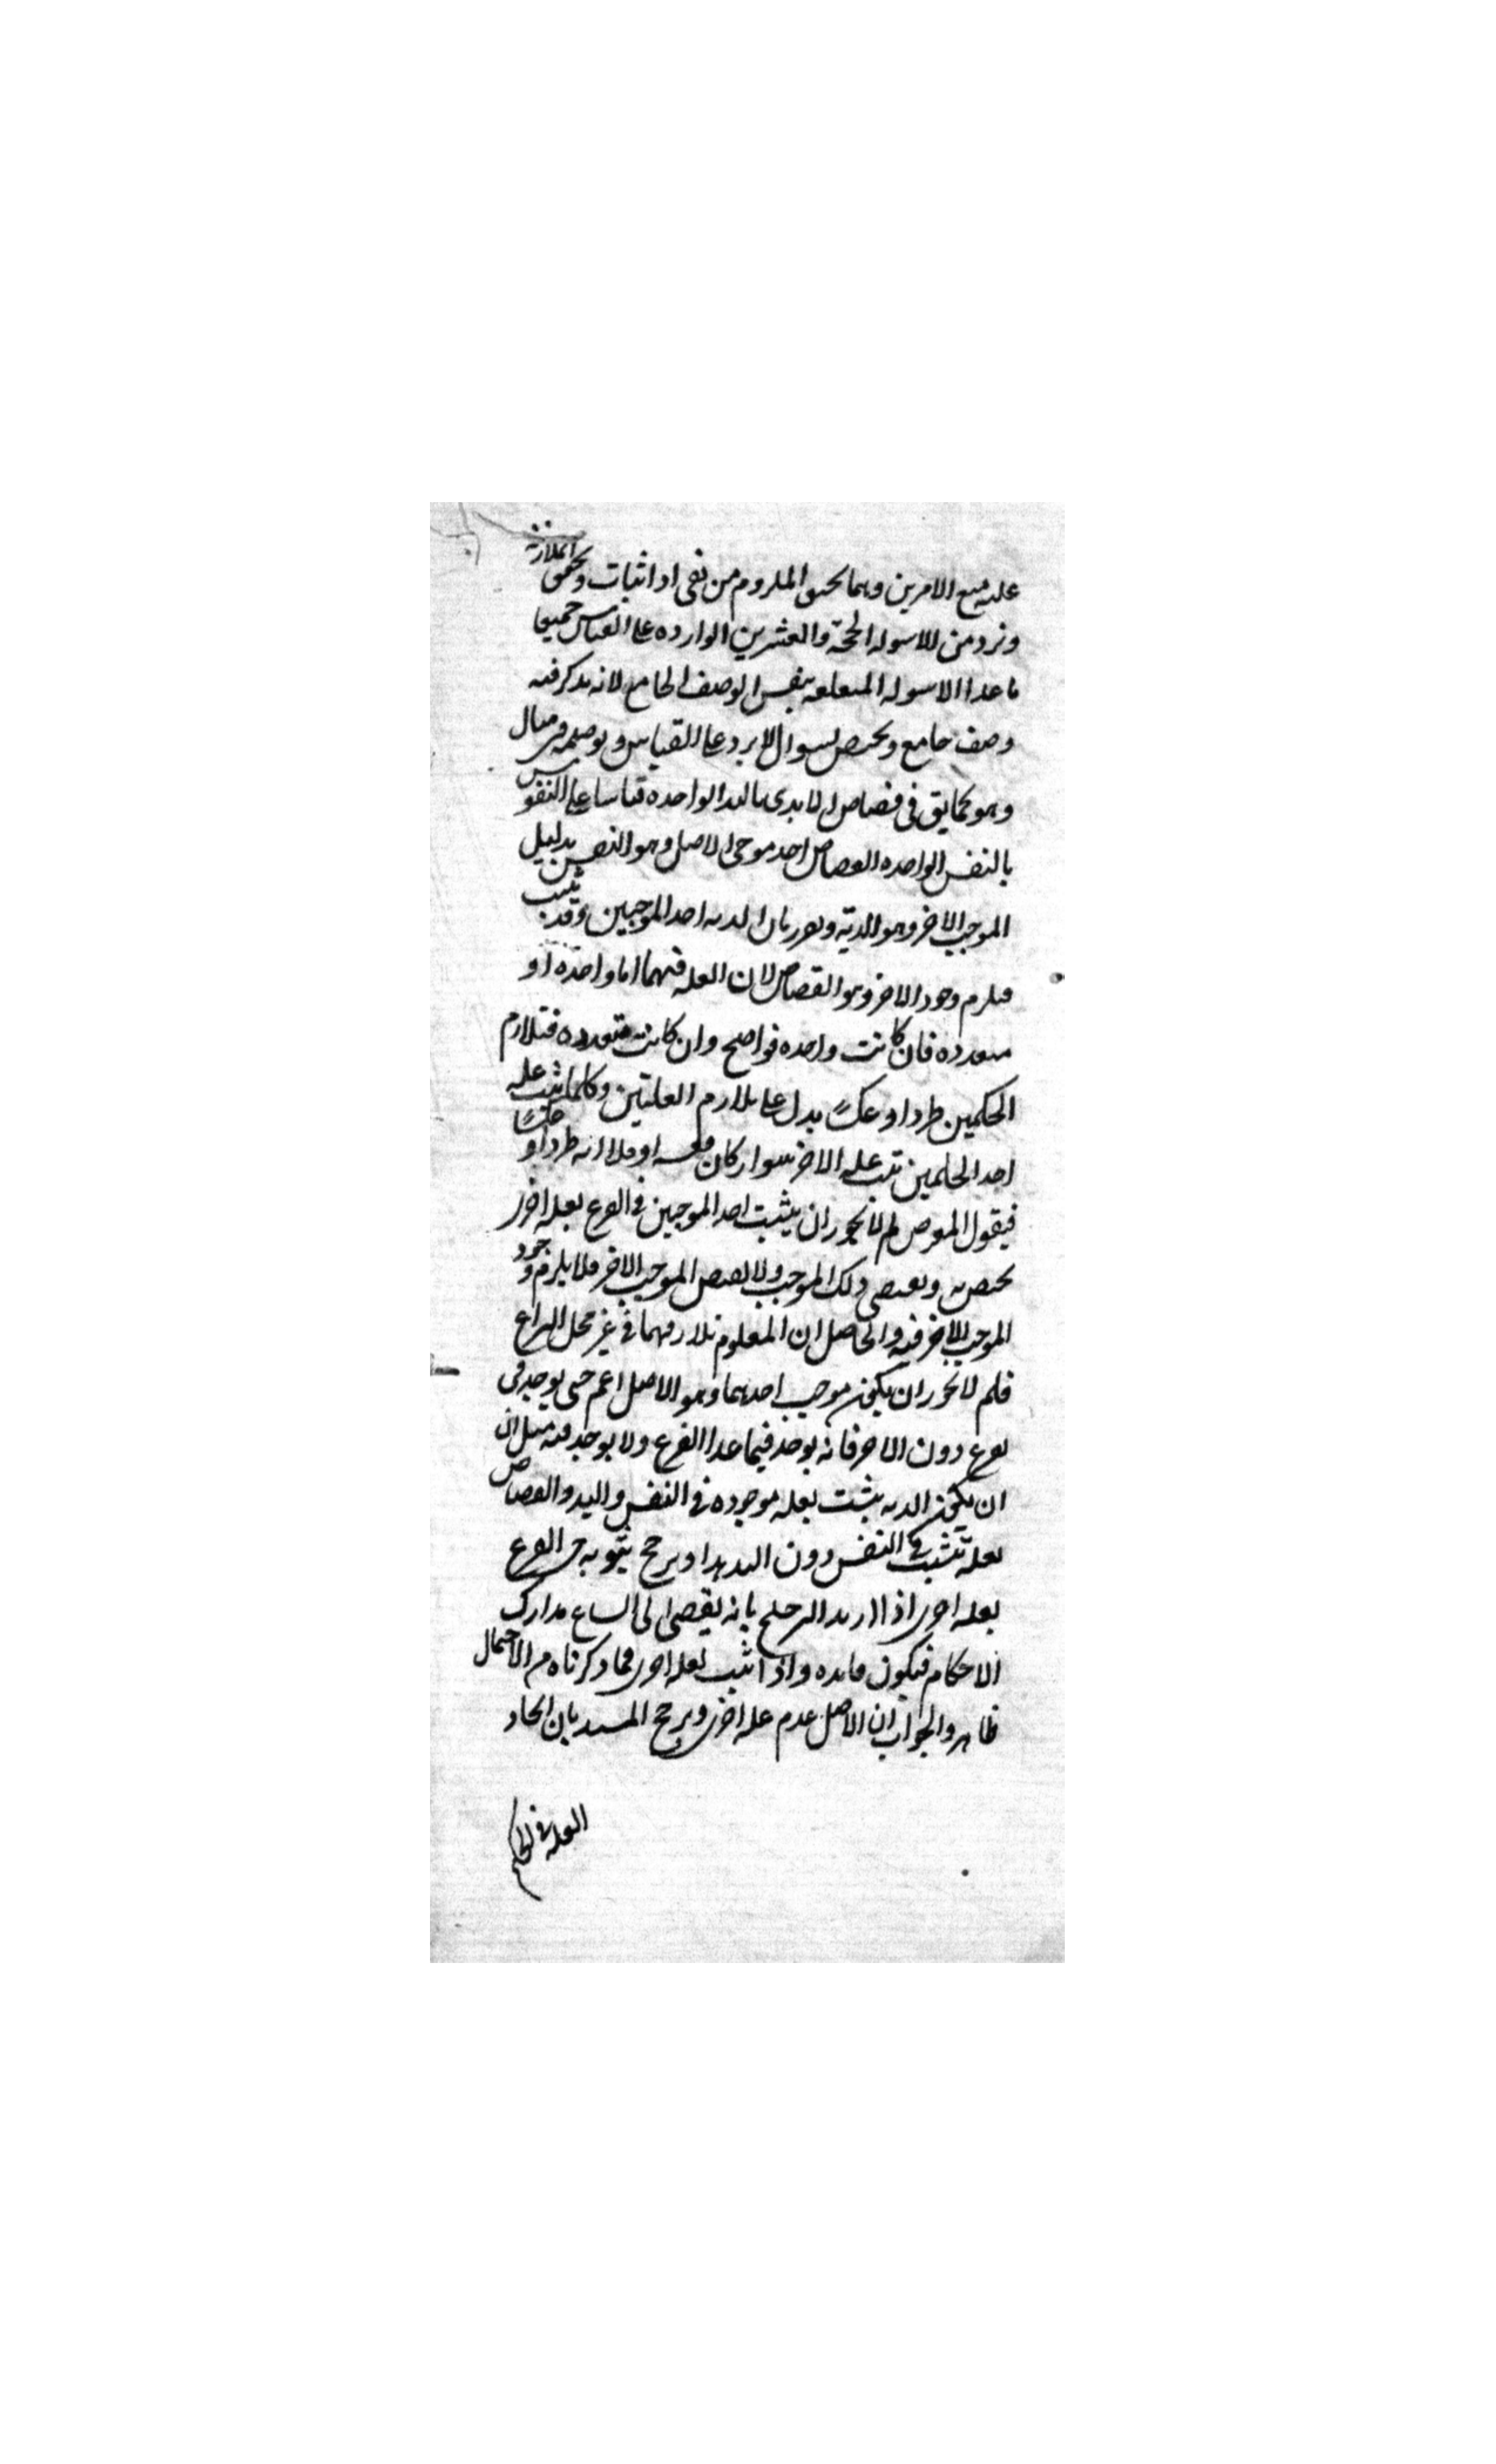 عليه منع الامرين وهما تحقق الملزوم من نفى او اثبات وتحقق الملازمة
ونرد من الاسوله الخمسة والعشرين الوارده على القياس جميعا
ما عدا الاسوله المتعلقه بنفس الوصف الجامع لانه لم يذكر فيه
وصف جامع ويختص بسوال لا يرد على القياس ونوضحه فى مثال
وهو كما يق فى قصاص الايدى باليد الواحده قياسا على النفوس
بالنفس الواحده القصاص احد موجبى الاصل وهو النفس بدليل
الموجب الاخر وهو الدية ونقرر بان الديه احد الموجبين وقد ثبت
فيلزم وجود الاخر وهو القصاص لان العله فيهما اما واحدة او
متعدده فان كانت واحده فواضح وان كانت متعدده فتلازم
الحكمين طردا وعكسا يدل على تلازم العلتين وكلما ثبت عله
احد الحكمين ثبت عله الاخر سوا كان او ملازمه طردا وعكسا
فيقول المعترض لم لا يجوز ان يثبت احد الموجبين فى الفرع بعله اخرى
تختص به ويقتضى ذلك الموجب ولا يقتضى الموجب الاخر فلا يلزم وجود
الموجب الاخر فيه والحاصل ان المعلوم تلازمهما فى غير محل النزاع
فلم لا يجوز ان يكون موجب احدهما وهو الاصل اعم حتى يوجد فى
لفرع دون الاخر فانه يوجد فيما عدا الفرع ولا يوجد فيه مثل ان
ان يكون الديه يثبت بعله موجوده فى النفس واليد والقصاص
بعلة تثبت فى النفس دون اليد هذا ويرجح ثبوته فى الفرع
بعله اخرى اذا اريد الترجيح بانه يفضى الى اتساع مدارك
الاحكام فيكون فايده واذا ثبت بعله اخرى فما ذكرناه من الاحتمال
ظاهر والجواب ان الاصل عدم علة اخرى ويرجح المستدل بان اتحاد
العله فى الحكم